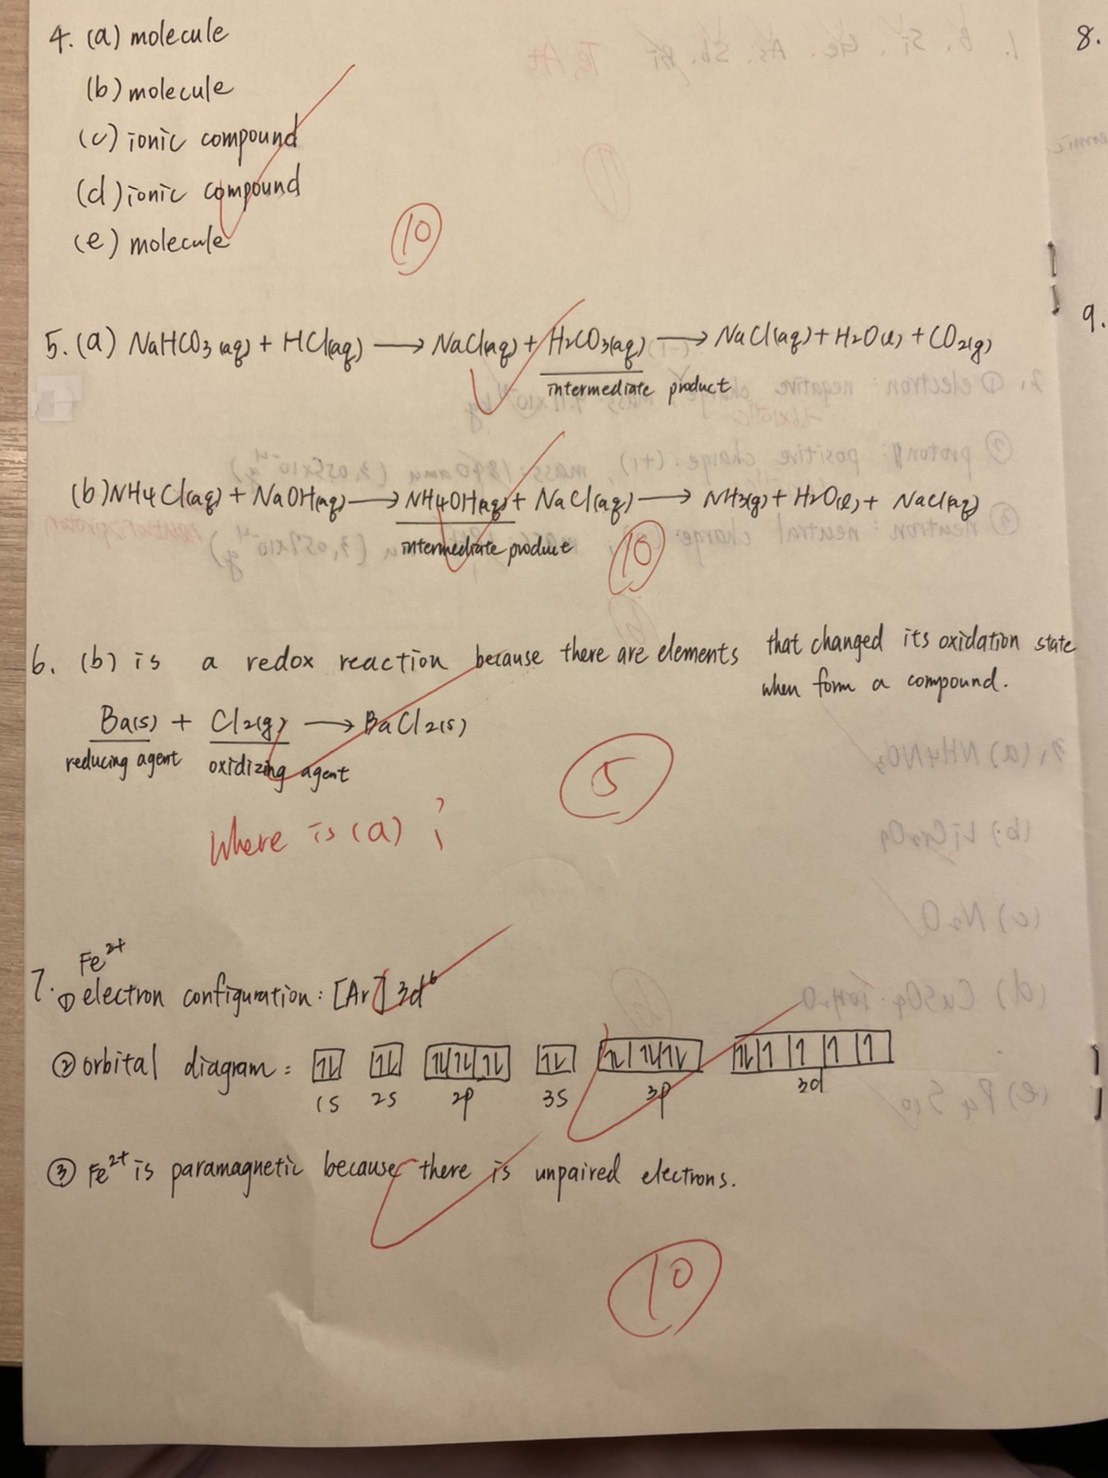 4. (a) molecule
(b) molecule
(c) ionic compound
(d) ionic compound
(e) molecule
10
5. (a) NaHCO3(aq) + HCl(aq) → NaCl(aq) + H2CO3(aq) → NaCl(aq) + H2O(l) + CO2(g)
intermediate product
(b) NH4Cl(aq) + NaOH(aq) → NH4OH(aq) + NaCl(aq) → NH3(g) + H2O(l) + NaCl(aq)
intermediate product
10
6. (b) is a redox reaction because there are elements that changed its oxidation state
when form a compound.
Ba(s) + Cl2(g) → BaCl2(s)
reducing agent oxidizing agent
5
Where is (a) ?
7. Fe2+
① electron configuration: [Ar] 3d6
② orbital diagram: 1s 2s 2p 3s 3p 3d
③ Fe2+ is paramagnetic because there is unpaired electrons.
10
8.
9.